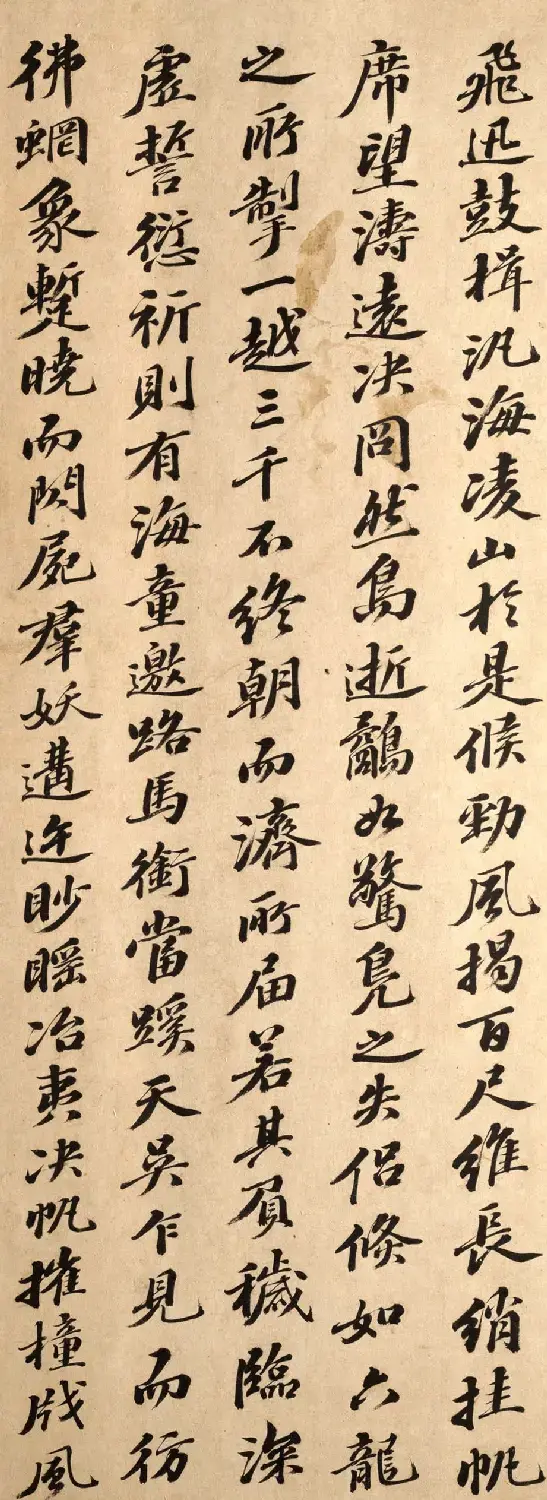 飛迅鼓揖汎海凌山於是候勁風揭百尺維長綃挂帆
席望濤遠决冏然鳥逝鷸如驚鳧之失侶倏如六龍
之所掣一越三千不終朝而濟所届若其負穢臨深
虛誓愆祈則有海童邀路馬銜當蹊天吳乍見而彷
彿蝄象蹔曉而閃屍羣妖遘迕眇䁘冶夷决帆摧橦戕風